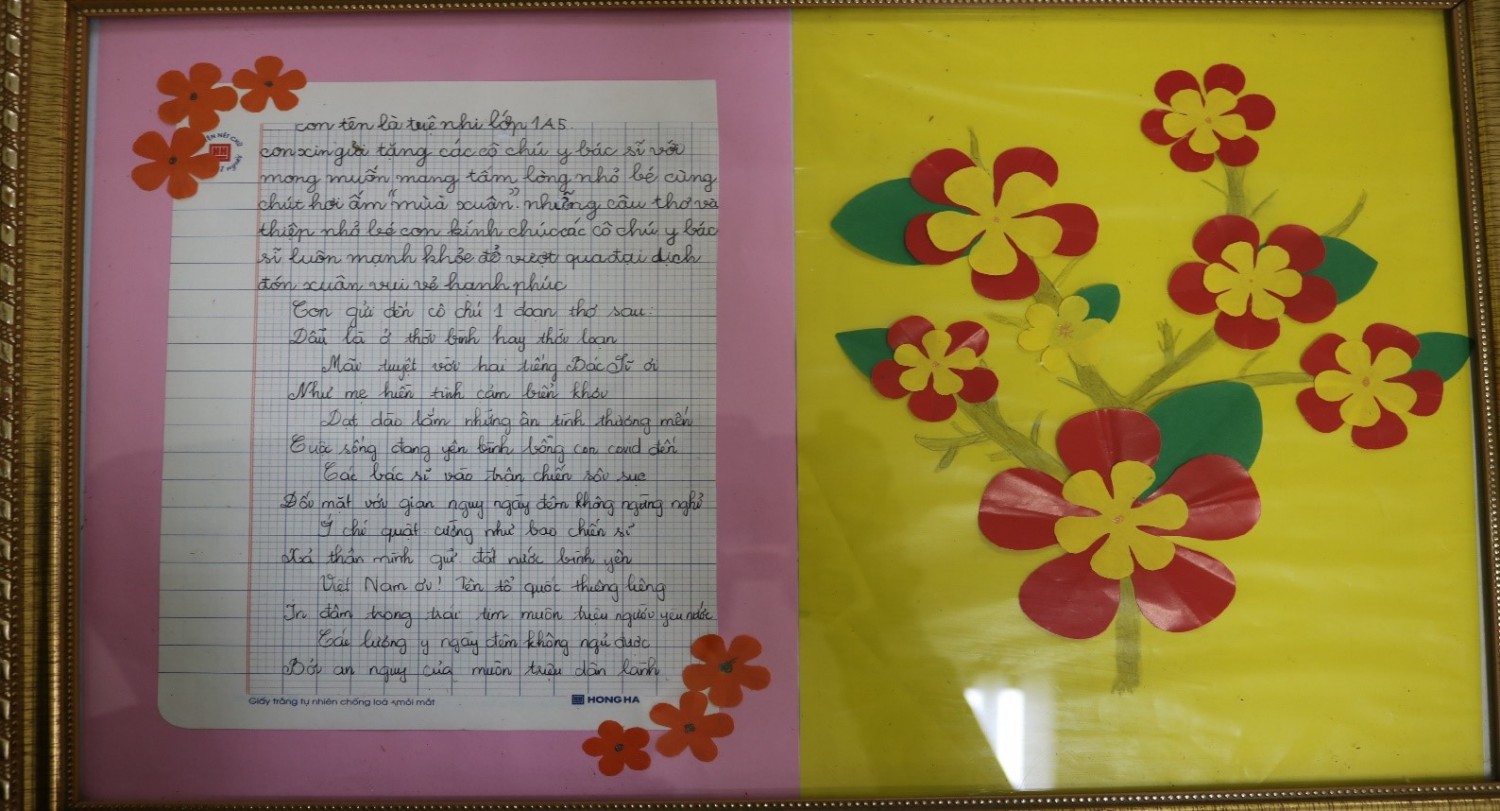 con tên là tuệ nhi lớp 1A5.
con xin gửi tặng các cô chú y bác sĩ với
mong muốn mang tấm lòng nhỏ bé cùng
chút hơi ấm "mùa xuân". những câu thơ và
thiệp nhỏ bé con kính chúc các cô chú y bác
sĩ luôn mạnh khỏe để vượt qua đại dịch
đón xuân vui vẻ hạnh phúc
Con gửi đến cô chú 1 đoạn thơ sau:
Dẫu là ở thời bình hay thời loạn
Mãi tuyệt vời hai tiếng Bác Sĩ ơi
Như mẹ hiền tình cảm biển khơi
Dạt dào lắm những ân tình thương mến
Cuộc sống đang yên bình bỗng con covid đến
Các bác sĩ vào trận chiến sôi sục
Đối mặt với gian nguy ngày đêm không ngừng nghỉ
Ý chí quật cường như bao chiến sĩ
Xả thân mình giữ đất nước bình yên
Việt Nam ơi! Tên tổ quốc thiêng liêng
In đậm trong trái tim muôn triệu người yêu nước
Các lương y ngày đêm không ngủ được
Bởi an nguy của muôn triệu dân lành
Giấy trắng tự nhiên chống loá mỏi mắt
HONG HA